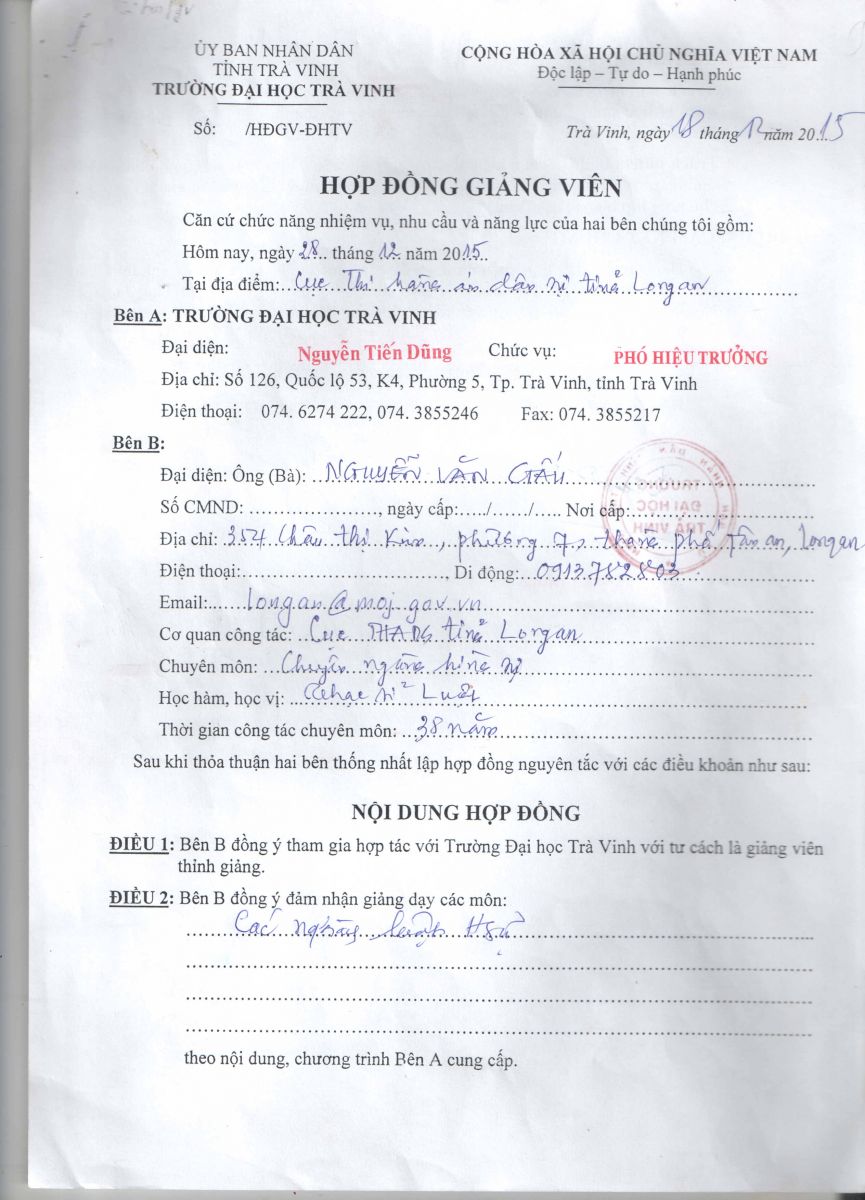 ỦY BAN NHÂN DÂN
TỈNH TRÀ VINH
TRƯỜNG ĐẠI HỌC TRÀ VINH
CỘNG HÒA XÃ HỘI CHỦ NGHĨA VIỆT NAM
Độc lập – Tự do – Hạnh phúc
Số: /HĐGV-ĐHTV
Trà Vinh, ngày 18 tháng 12 năm 2015
HỢP ĐỒNG GIẢNG VIÊN
Căn cứ chức năng nhiệm vụ, nhu cầu và năng lực của hai bên chúng tôi gồm:
Hôm nay, ngày 28 tháng 12 năm 2015
Tại địa điểm: Cục Thi hành án dân sự tỉnh Long an
Bên A: TRƯỜNG ĐẠI HỌC TRÀ VINH
Đại diện: Nguyễn Tiến Dũng Chức vụ: PHÓ HIỆU TRƯỞNG
Địa chỉ: Số 126, Quốc lộ 53, K4, Phường 5, Tp. Trà Vinh, tỉnh Trà Vinh
Điện thoại: 074. 6274 222, 074. 3855246 Fax: 074. 3855217
Bên B:
Đại diện: Ông (Bà): NGUYỄN VĂN GẤU
Số CMND: ...................., ngày cấp:...../....../..... Nơi cấp:
Địa chỉ: 354 Châu thị Kim, phường 7, thành phố Tân an, Long an
Điện thoại:..............................., Di động: 0913782803
Email: longan@moj.gov.vn
Cơ quan công tác: Cục THADS tỉnh Long an
Chuyên môn: Chuyên ngành hình sự
Học hàm, học vị: Thạc sĩ Luật
Thời gian công tác chuyên môn: 38 năm
Sau khi thỏa thuận hai bên thống nhất lập hợp đồng nguyên tắc với các điều khoản như sau:
NỘI DUNG HỢP ĐỒNG
ĐIỀU 1: Bên B đồng ý tham gia hợp tác với Trường Đại học Trà Vinh với tư cách là giảng viên
thỉnh giảng.
ĐIỀU 2: Bên B đồng ý đảm nhận giảng dạy các môn:
Các ngành luật
theo nội dung, chương trình Bên A cung cấp.